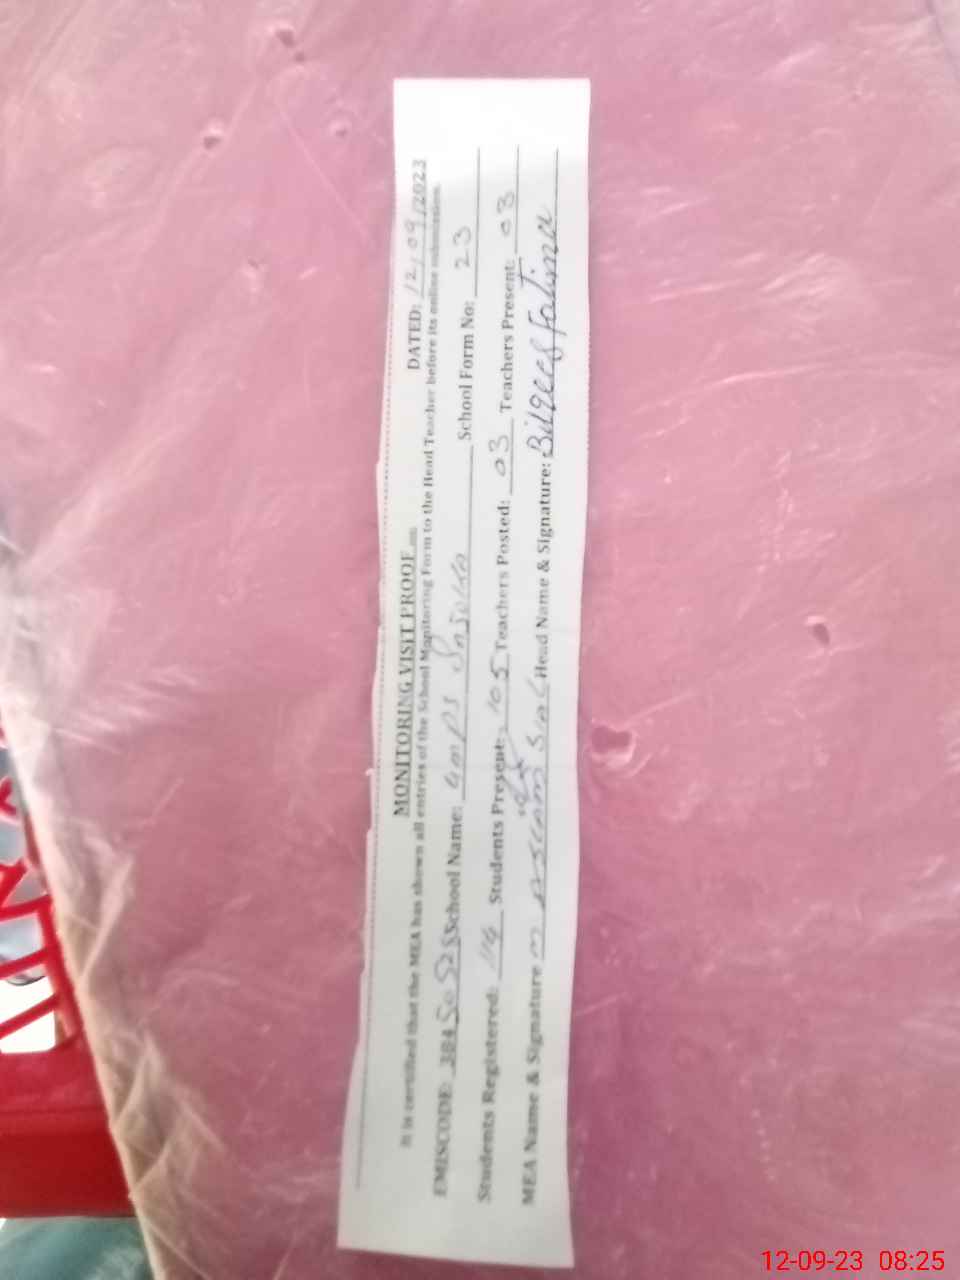 MONITORING VISIT PROOF DATED: 12/09/2023
It is certified that the MEA has shown all entries of the School Monitoring Form to the Head Teacher before its online submission.
EMISCODE: 38450525 School Name: GMPS School Form No: 23
Students Registered: 114 Students Present: 105 Teachers Posted: 03 Teachers Present: 03
MEA Name & Signature M Aslam Sial Head Name & Signature: Bilqees Fatima
12-09-23 08:25